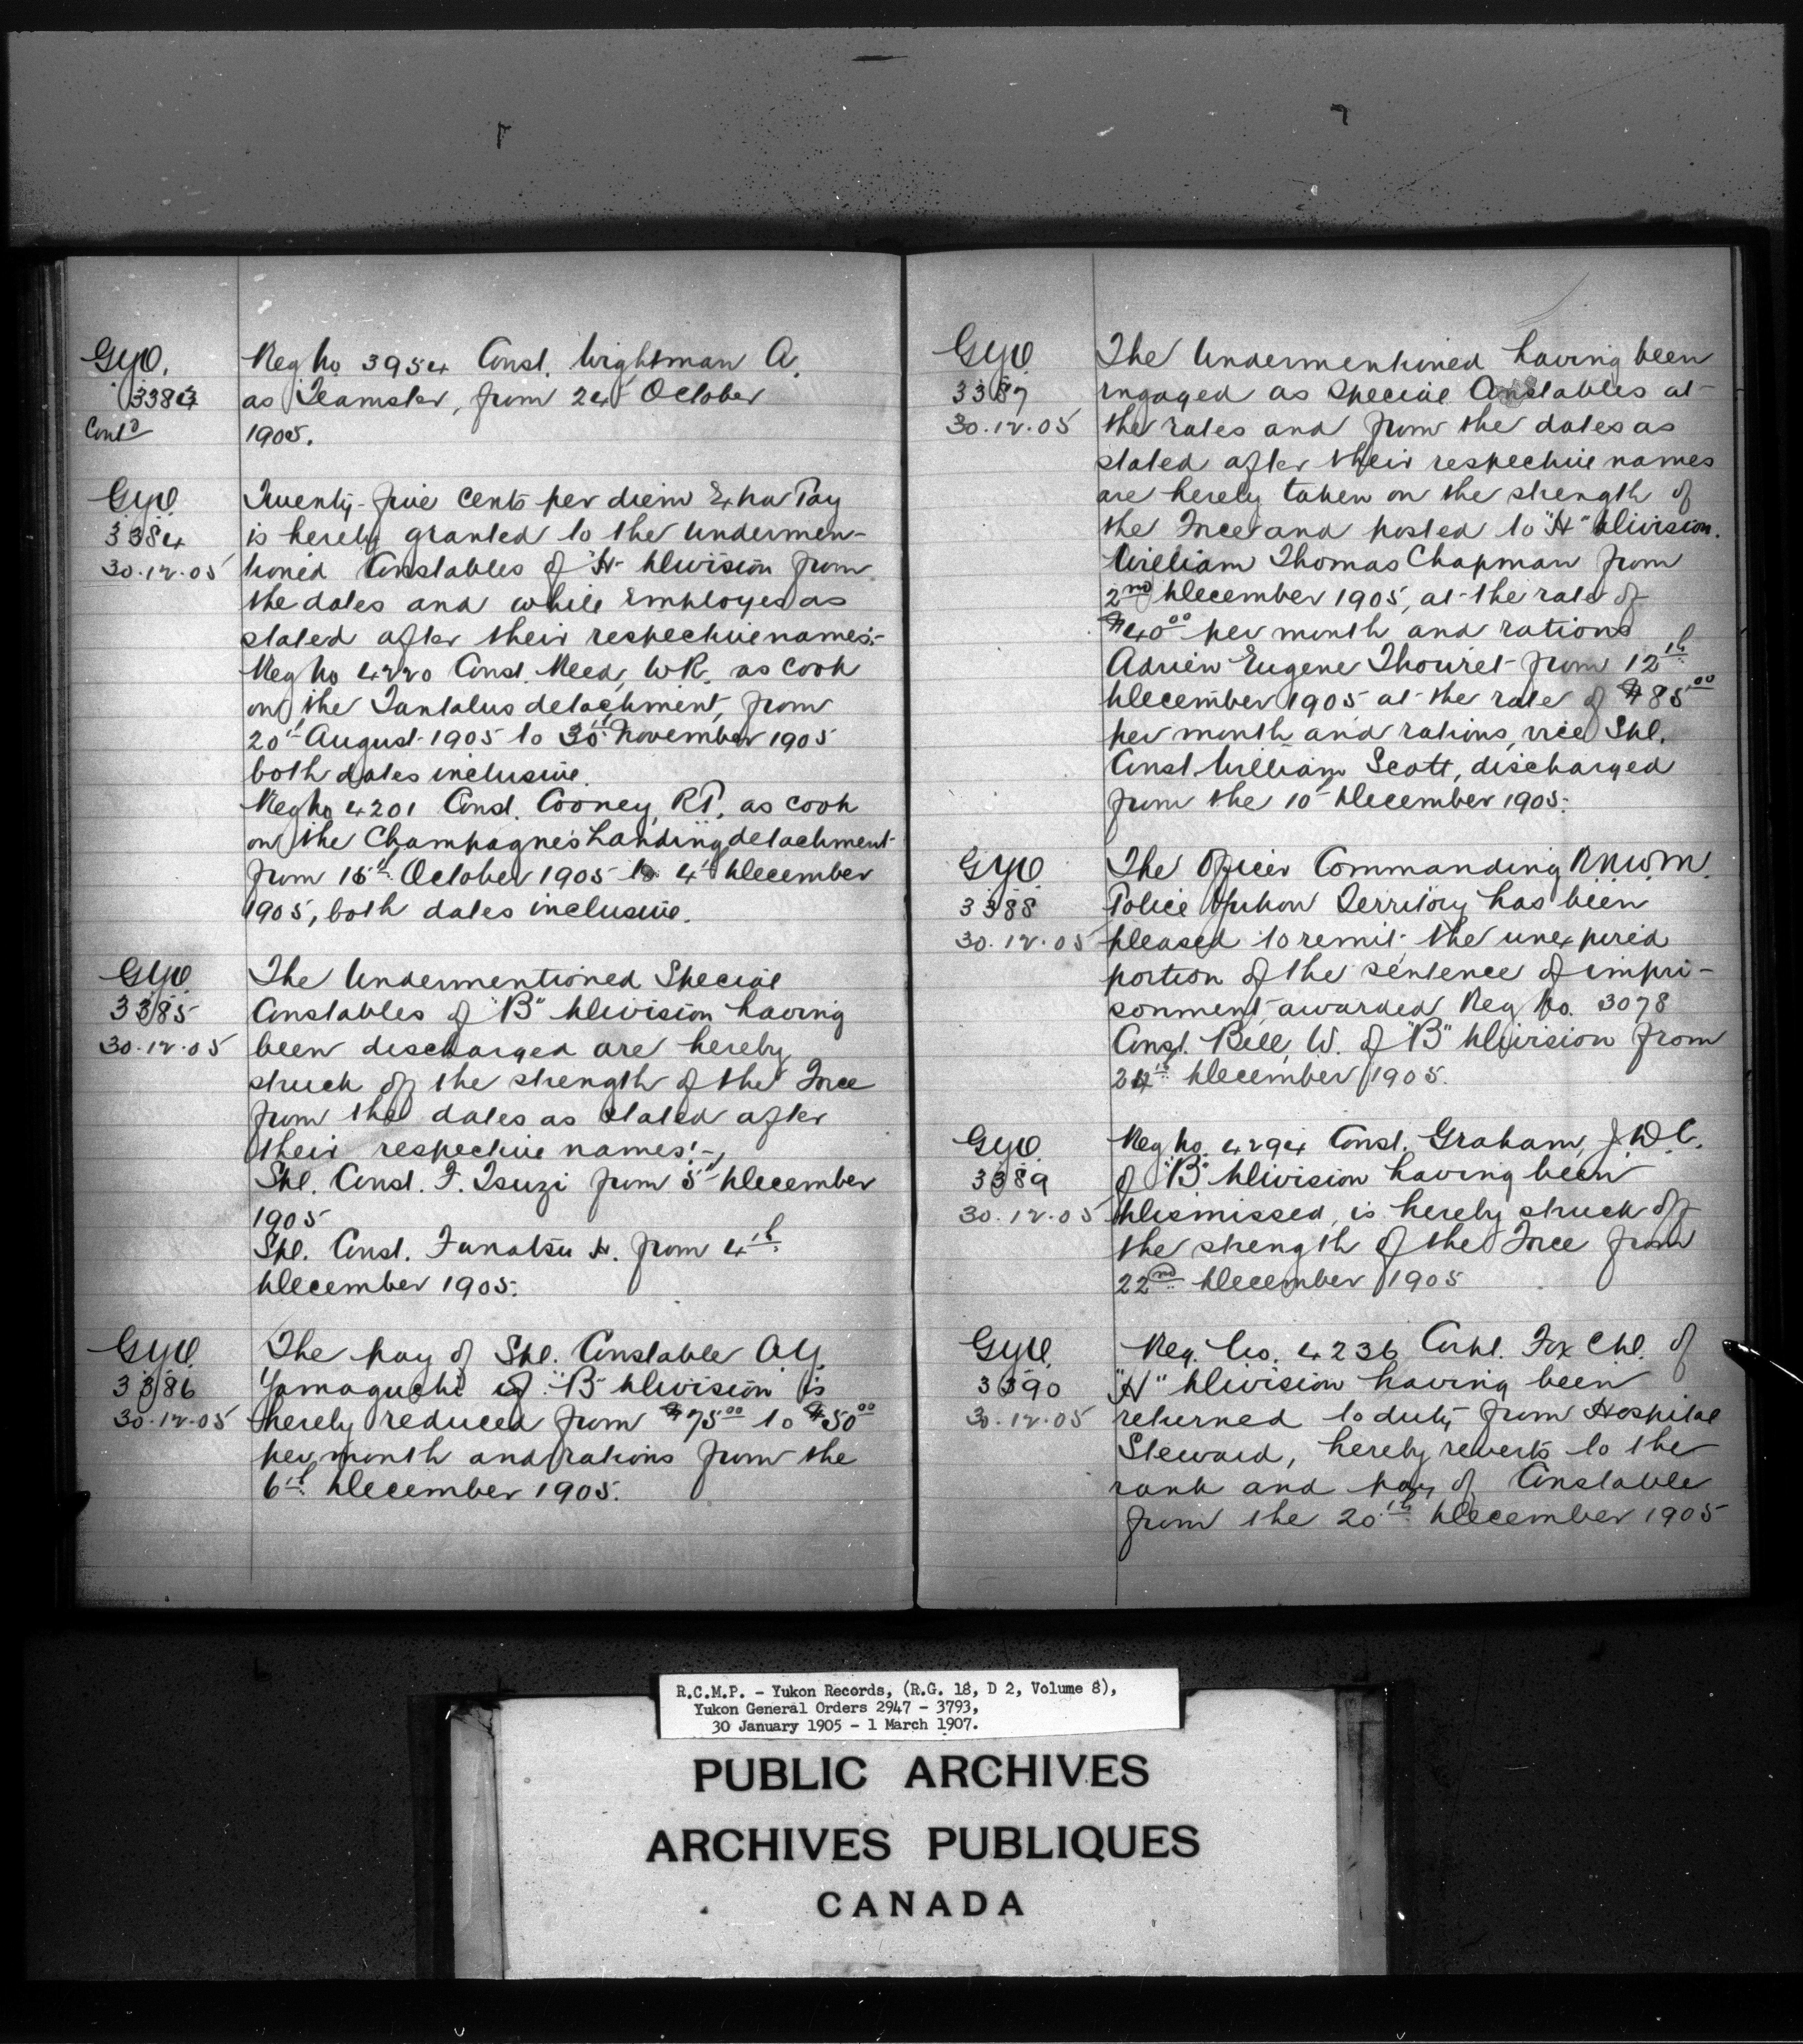 G.Y.O.
3383
Contd
Reg No. 3954 Const. Wightman A.
as Teamster, from 24th October
1905.
G.Y.O.
3384
30.12.05
Twenty-five cents per diem Extra Pay
is hereby granted to the undermen-
tioned Constables of "H" Division from
the dates and while Employed as
stated after their respective names:-
Reg No 4220 Const. Meed, W.R. as cook
on the Tantalus detachment, from
20th August 1905 to 30th November 1905
both dates inclusive.
Reg No 4201 Const. Cooney, R.P. as cook
on the Champagne's Landing detachment
from 15th October 1905 to 4th December
1905, both dates inclusive.
G.Y.O.
3385
30.12.05
The Undermentioned Special
Constables of "B" Division having
been discharged are hereby
struck off the strength of the Force
from the dates as stated after
their respective names:-
Spl. Const. F. Tsuzi from 5th December
1905
Spl. Const. Funatsu H. from 4th
December 1905.
G.Y.O.
3386
30.12.05
The pay of Spl. Constable O.Y.
Yamaguchi of "B" Division is
hereby reduced from $75.00 to $50.00
per month and rations from the
6th December 1905.
G.Y.O.
3387
30.12.05
The Undermentioned having been
engaged as Special Constables at
the rates and from the dates as
stated after their respective names
are hereby taken on the strength of
the Force and posted to "H" Division.
William Thomas Chapman from
2nd December 1905, at the rate of
$40.00 per month and rations
Adrien Eugene Thouret from 12th
December 1905 at the rate of $85.00
per month and rations, vice Spl.
Const. William Scott, discharged
from the 10th December 1905.
G.Y.O.
3388
30.12.05
The Officer Commanding R.N.W.M.
Police Yukon Territory has been
pleased to remit the unexpired
portion of the sentence of impri-
sonment awarded Reg No. 3078
Const. Bell, W. of "B" Division from
December 1905.
G.Y.O.
3389
30.12.05
Reg No. 4294 Const. Graham, J.W.C.
of "B" Division having been
Dismissed, is hereby struck off
the strength of the Force from
22nd December 1905
G.Y.O.
3390
30.12.05
Reg. No. 4236 Corpl. Fox Chl. of
"H" Division having been
returned to duty from Hospital
Steward, hereby reverts to the
rank and pay of Constable
from the 20th December 1905
R.C.M.P. - Yukon Records, (R.G. 18, D 2, Volume 8),
Yukon General Orders 2947 - 3793,
30 January 1905 - 1 March 1907.
PUBLIC ARCHIVES
ARCHIVES PUBLIQUES
CANADA